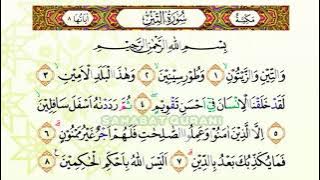 مَكِّيَّةٌ سُوْرَةُ التِّيْنِ اٰيَاتُهَا ٨
بِسْمِ اللّٰهِ الرَّحْمٰنِ الرَّحِيْمِ
وَالتِّيْنِ وَالزَّيْتُوْنِۙ ١ وَطُوْرِ سِيْنِيْنَۙ ٢ وَهٰذَا الْبَلَدِ الْاَمِيْنِۙ ٣
لَقَدْ خَلَقْنَا الْاِنْسَانَ فِيْٓ اَحْسَنِ تَقْوِيْمٍۖ ٤ ثُمَّ رَدَدْنٰهُ اَسْفَلَ سَافِلِيْنَۙ
SAHABAT QURANI
٥ اِلَّا الَّذِيْنَ اٰمَنُوْا وَعَمِلُوا الصّٰلِحٰتِ فَلَهُمْ اَجْرٌ غَيْرُ مَمْنُوْنٍۗ ٦
فَمَا يُكَذِّبُكَ بَعْدُ بِالدِّيْنِۗ ٧ اَلَيْسَ اللّٰهُ بِاَحْكَمِ الْحٰكِمِيْنَ ٨